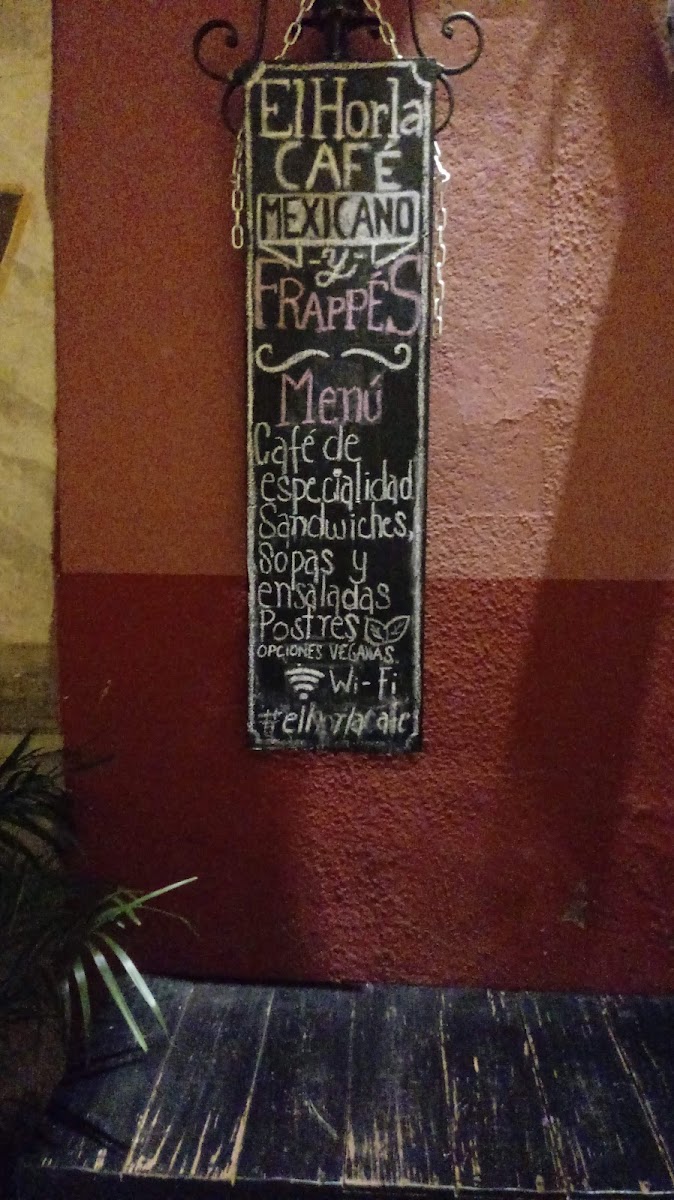 El Horla
CAFÉ
MEXICANO
-y-
FRAPPÉS
Menú
Café de
especialidad
Sandwiches,
Sopas y
ensaladas
Postres
OPCIONES VEGANAS
Wi-Fi
#elhorlacafe